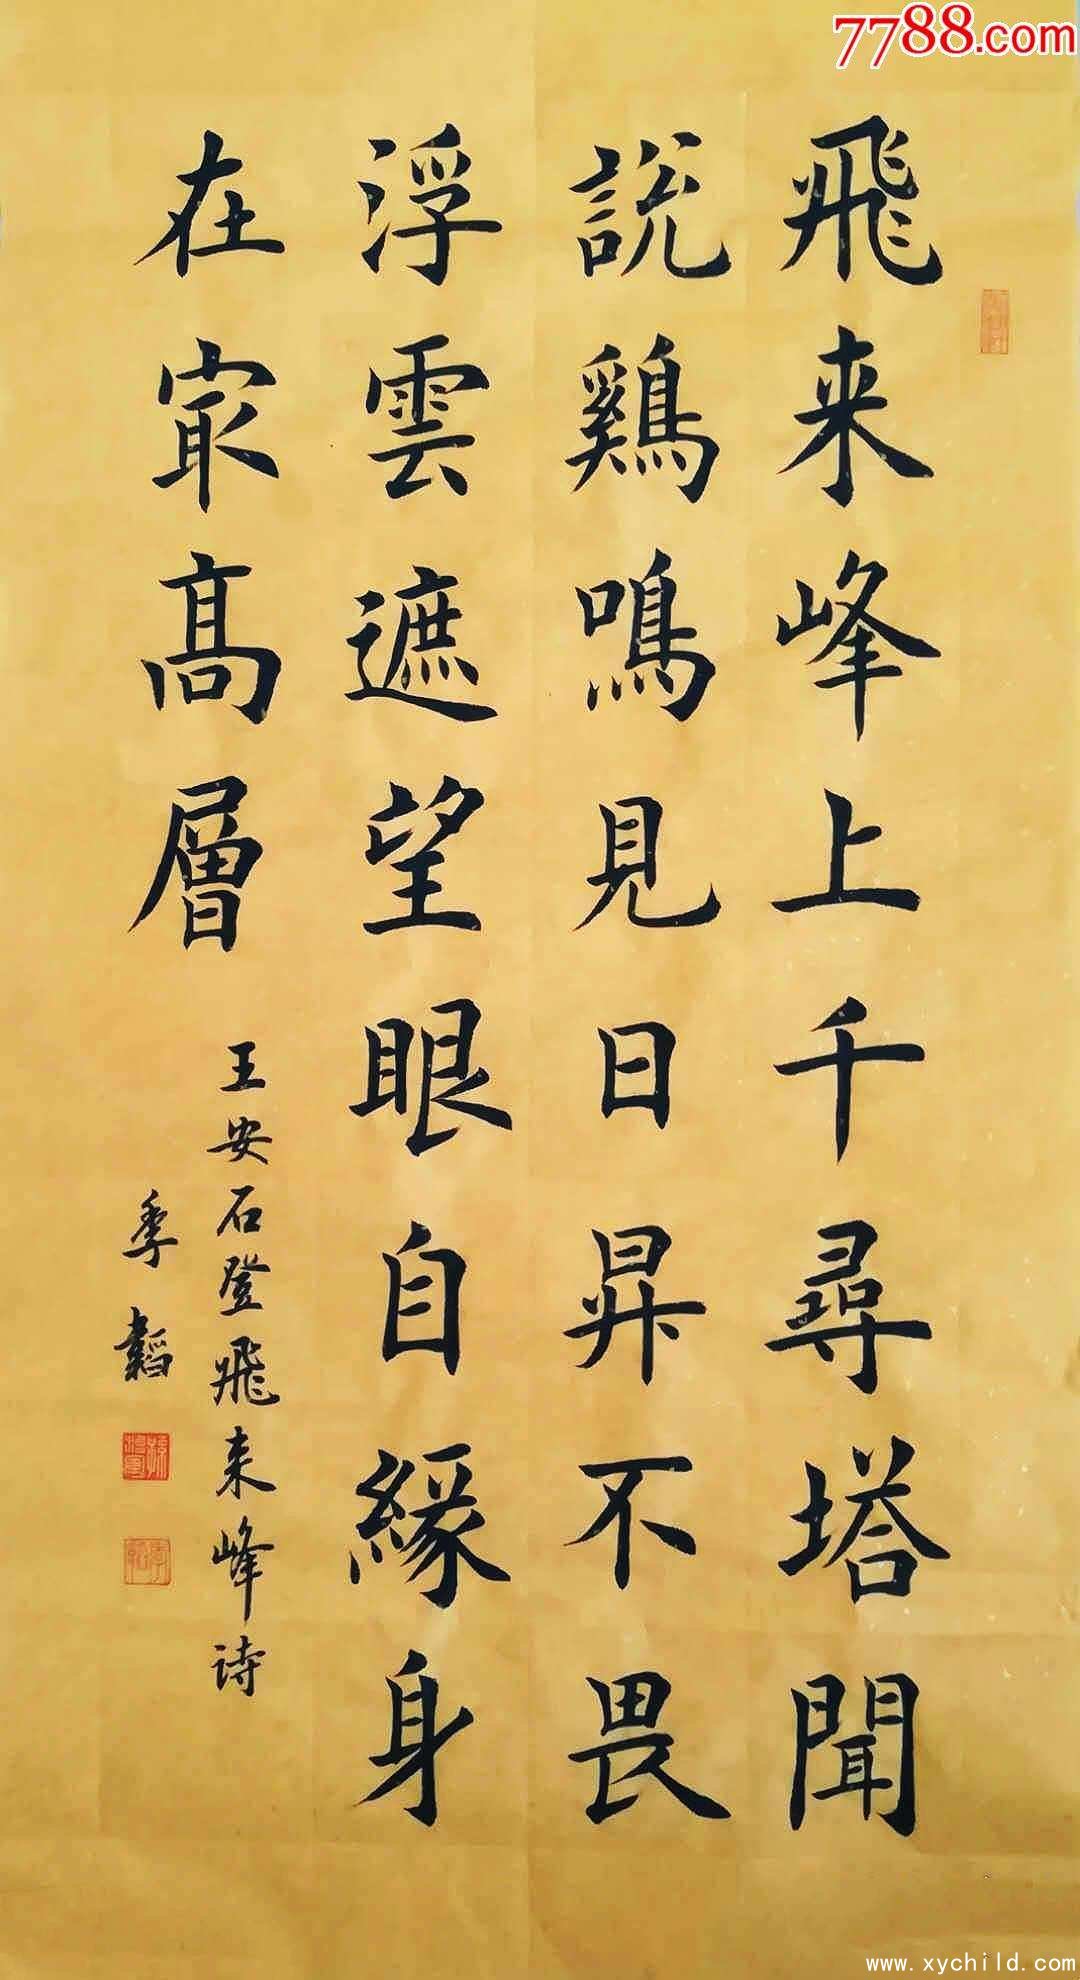 7788.com
飛来峰上千尋塔聞
説鷄鳴見日昇不畏
浮雲遮望眼自緣身
在冣高層
王安石登飛来峰诗
季韜
www.xychild.com